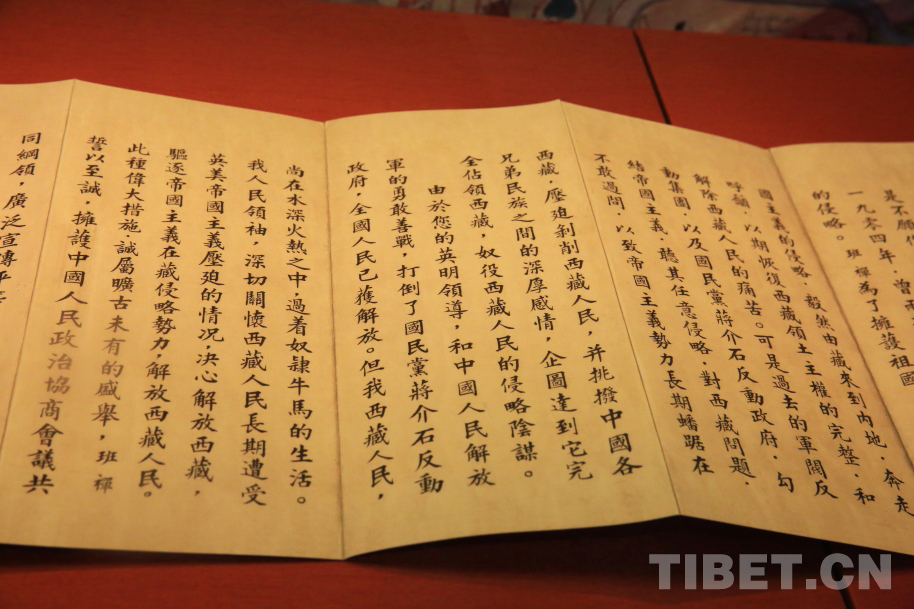 是不願
一九零四年，曾兩
的侵略。班禪為了擁護祖國
國主義的侵略，毅然由藏來到內地，奔走
呼籲，以期恢復西藏領土主權的完整，和
解除西藏人民的痛苦。可是過去的軍閥反
動集團，以及國民黨蔣介石反動政府，勾
結帝國主義，聽其任意侵略，對西藏問題，
不敢過問，以致帝國主義勢力長期蟠踞在
西藏，壓迫剝削西藏人民，并挑撥中國各
兄弟民族之間的深厚感情，企圖達到它完
全佔領西藏，奴役西藏人民的侵略陰謀。
由於您的英明領導，和中國人民解放
軍的勇敢善戰，打倒了國民黨蔣介石反動
政府，全國人民已獲解放。但我西藏人民，
尚在水深火熱之中，過着奴隸牛馬的生活。
我人民領袖，深切關懷西藏人民長期遭受
英美帝國主義壓迫的情況，決心解放西藏，
驅逐帝國主義在藏侵略勢力，解放西藏人民。
此種偉大措施，誠屬曠古未有的盛舉，班禪
誓以至誠，擁護中國人民政治協商會議共
同綱領，廣泛宣傳平等
TIBET.CN